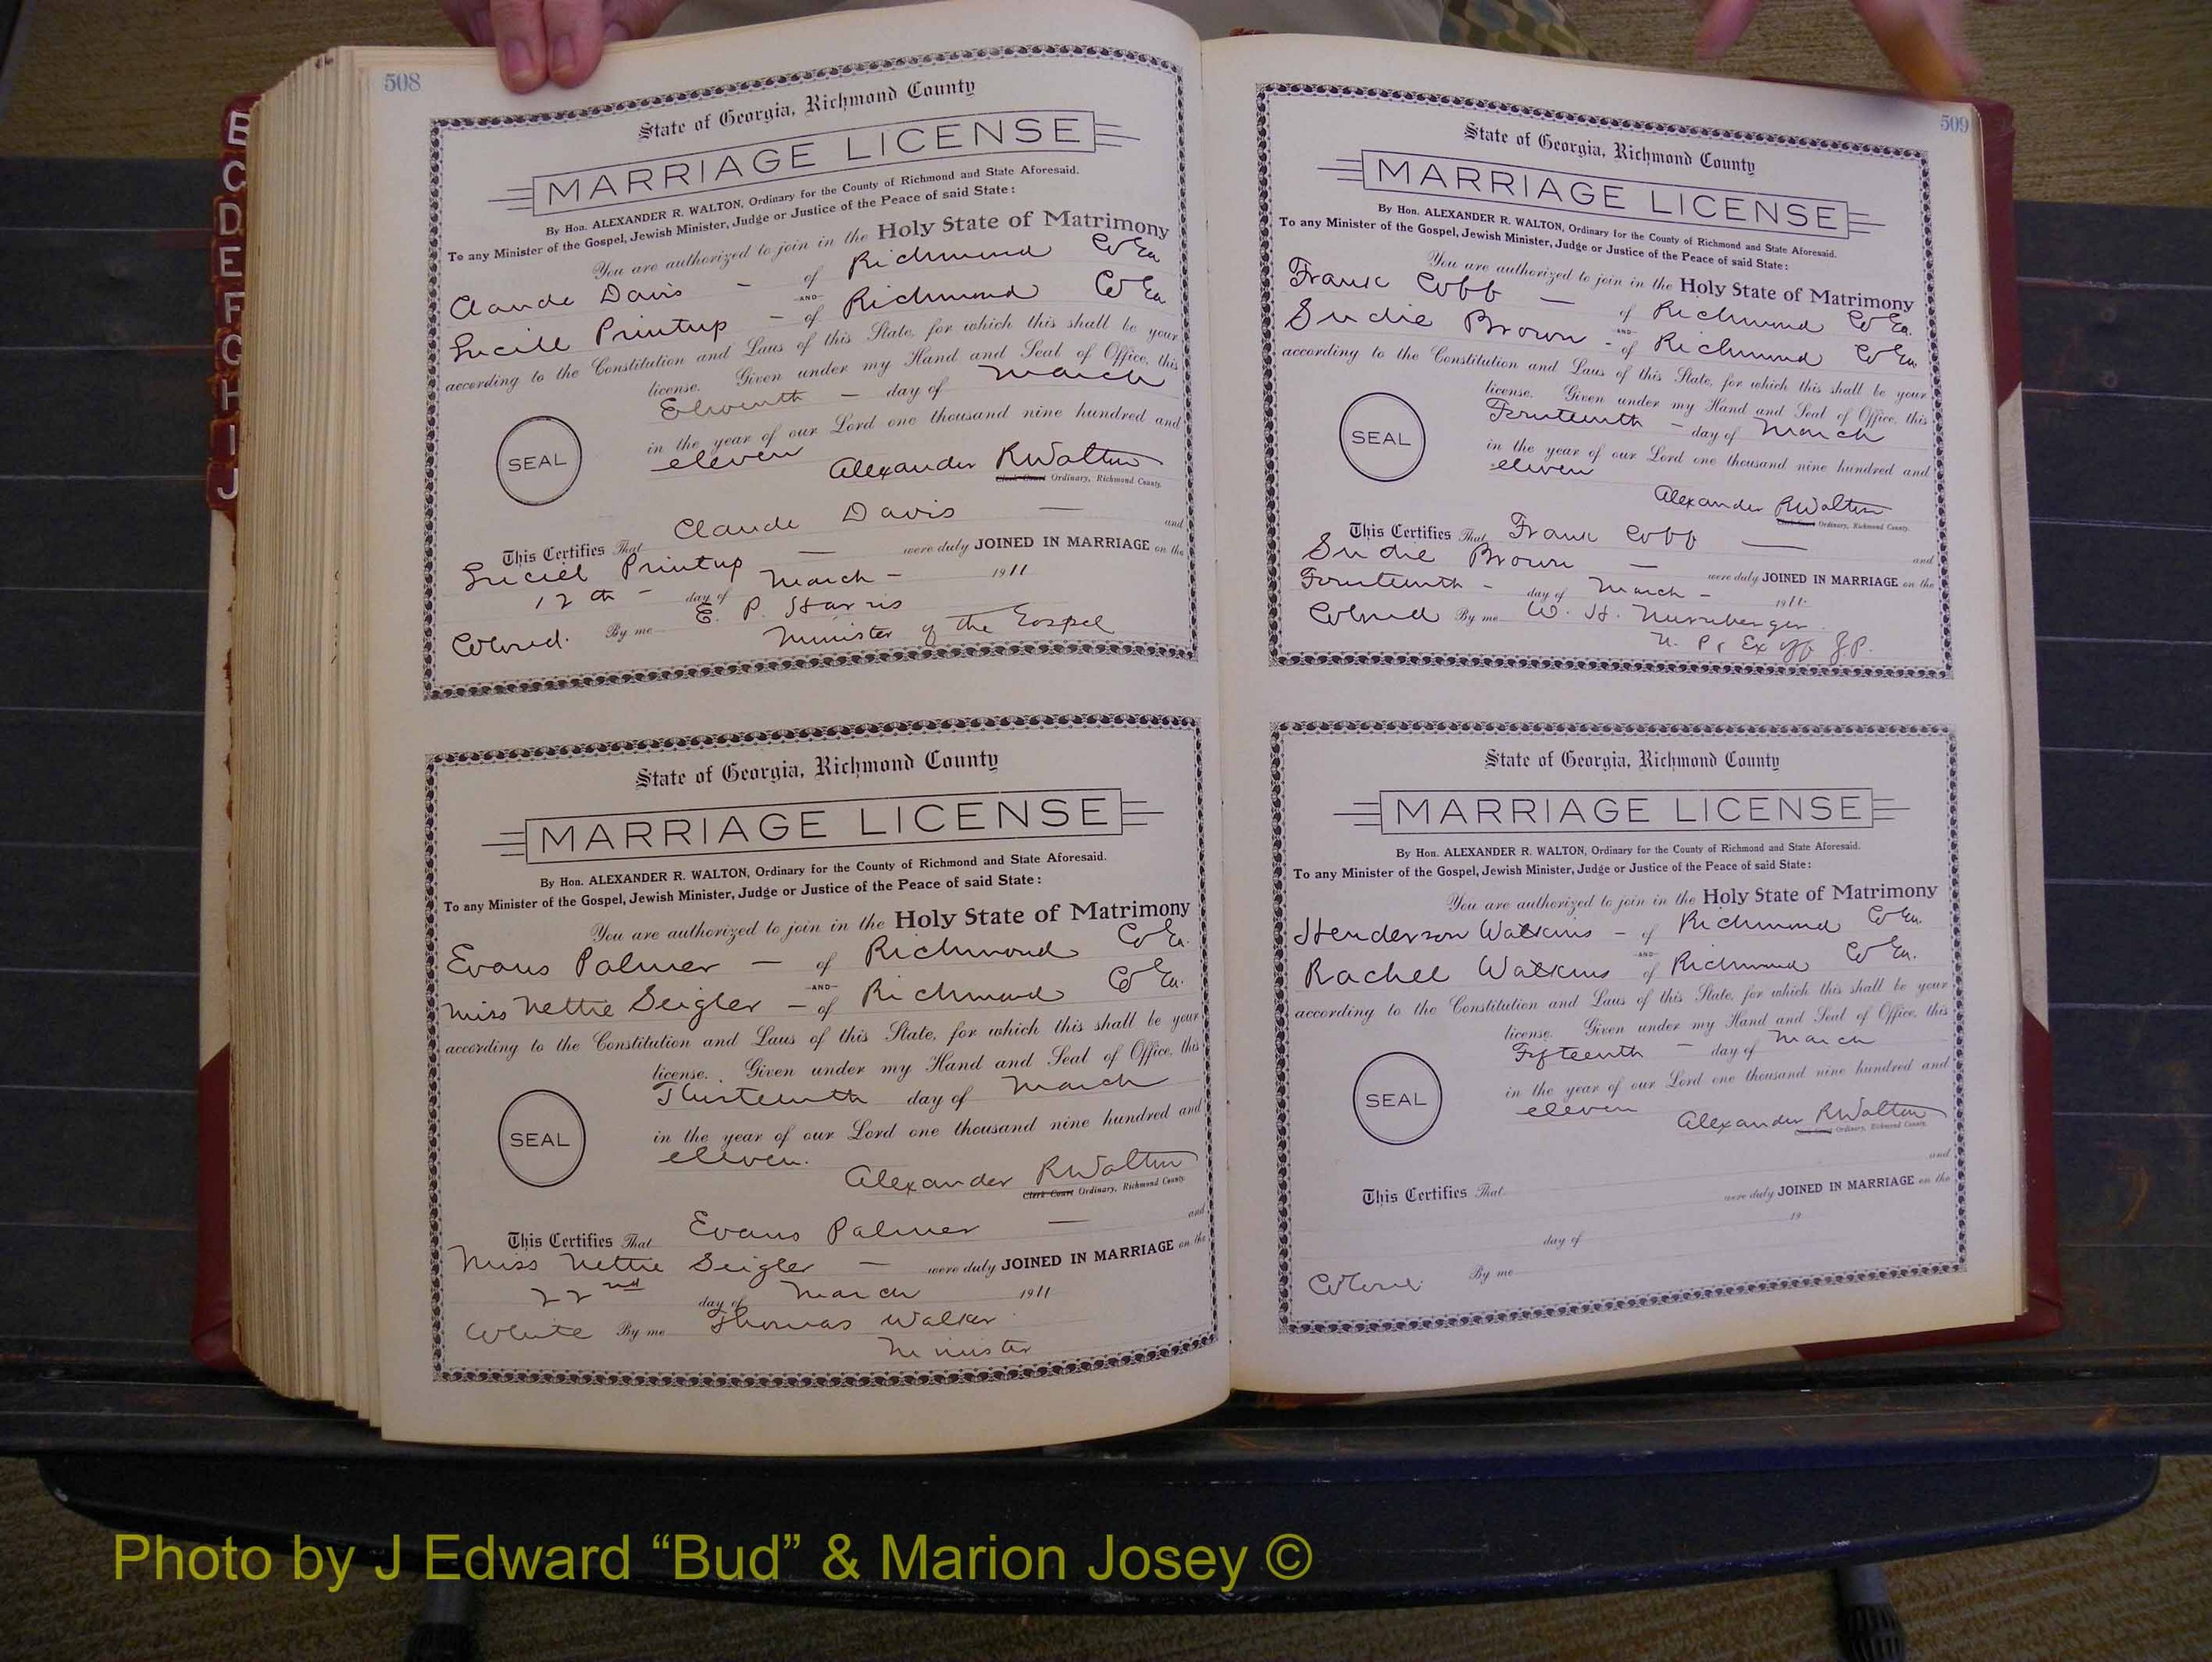 B
C
D
E
F
G
H
I
J
508
State of Georgia, Richmond County
MARRIAGE LICENSE
By Hon. ALEXANDER R. WALTON, Ordinary for the County of Richmond and State Aforesaid.
To any Minister of the Gospel, Jewish Minister, Judge or Justice of the Peace of said State:
You are authorized to join in the Holy State of Matrimony
Claude Davis — of Richmond Co Ga
AND
Lucill Printup — of Richmond Co Ga
according to the Constitution and Laws of this State, for which this shall be your
license. Given under my Hand and Seal of Office, this
Eleventh — day of March
in the year of our Lord one thousand nine hundred and
eleven Alexander R Walton
SEAL
Clerk Court Ordinary, Richmond County.
This Certifies That Claude Davis — and
Lucill Printup — were duly JOINED IN MARRIAGE on the
12th — day of March — 1911
Colored. By me E. P. Harris
Minister of the Gospel
State of Georgia, Richmond County
MARRIAGE LICENSE
By Hon. ALEXANDER R. WALTON, Ordinary for the County of Richmond and State Aforesaid.
To any Minister of the Gospel, Jewish Minister, Judge or Justice of the Peace of said State:
You are authorized to join in the Holy State of Matrimony
Evans Palmer — of Richmond Co Ga.
AND
Miss Nettie Seigler — of Richmond Co Ga.
according to the Constitution and Laws of this State, for which this shall be your
license. Given under my Hand and Seal of Office, this
Thirteenth day of March
in the year of our Lord one thousand nine hundred and
eleven. Alexander R Walton
SEAL
Clerk Court Ordinary, Richmond County.
This Certifies That Evans Palmer — and
Miss Nettie Seigler — were duly JOINED IN MARRIAGE on the
22nd day of March 1911
White By me Thomas Walker
Minister
509
State of Georgia, Richmond County
MARRIAGE LICENSE
By Hon. ALEXANDER R. WALTON, Ordinary for the County of Richmond and State Aforesaid.
To any Minister of the Gospel, Jewish Minister, Judge or Justice of the Peace of said State:
You are authorized to join in the Holy State of Matrimony
Frank Cobb — of Richmond Co Ga.
AND
Sudie Brown - of Richmond Co Ga
according to the Constitution and Laws of this State, for which this shall be your
license. Given under my Hand and Seal of Office, this
Fourteenth — day of March
in the year of our Lord one thousand nine hundred and
eleven
SEAL
Alexander R Walton
Clerk Court Ordinary, Richmond County.
This Certifies That Frank Cobb — and
Sudie Brown — were duly JOINED IN MARRIAGE on the
Fourteenth — day of March — 1911.
Colored By me W. H. Nurnberger
N. P. & Ex off J.P.
State of Georgia, Richmond County
MARRIAGE LICENSE
By Hon. ALEXANDER R. WALTON, Ordinary for the County of Richmond and State Aforesaid.
To any Minister of the Gospel, Jewish Minister, Judge or Justice of the Peace of said State:
You are authorized to join in the Holy State of Matrimony
Henderson Watkins — of Richmond Co Ga.
AND
Rachel Watkins of Richmond Co Ga.
according to the Constitution and Laws of this State, for which this shall be your
license. Given under my Hand and Seal of Office, this
Fifteenth — day of March
in the year of our Lord one thousand nine hundred and
eleven Alexander R Walton
SEAL
Clerk Court Ordinary, Richmond County.
This Certifies That and
were duly JOINED IN MARRIAGE on the
day of 19
Colored By me
Photo by J Edward “Bud” & Marion Josey ©